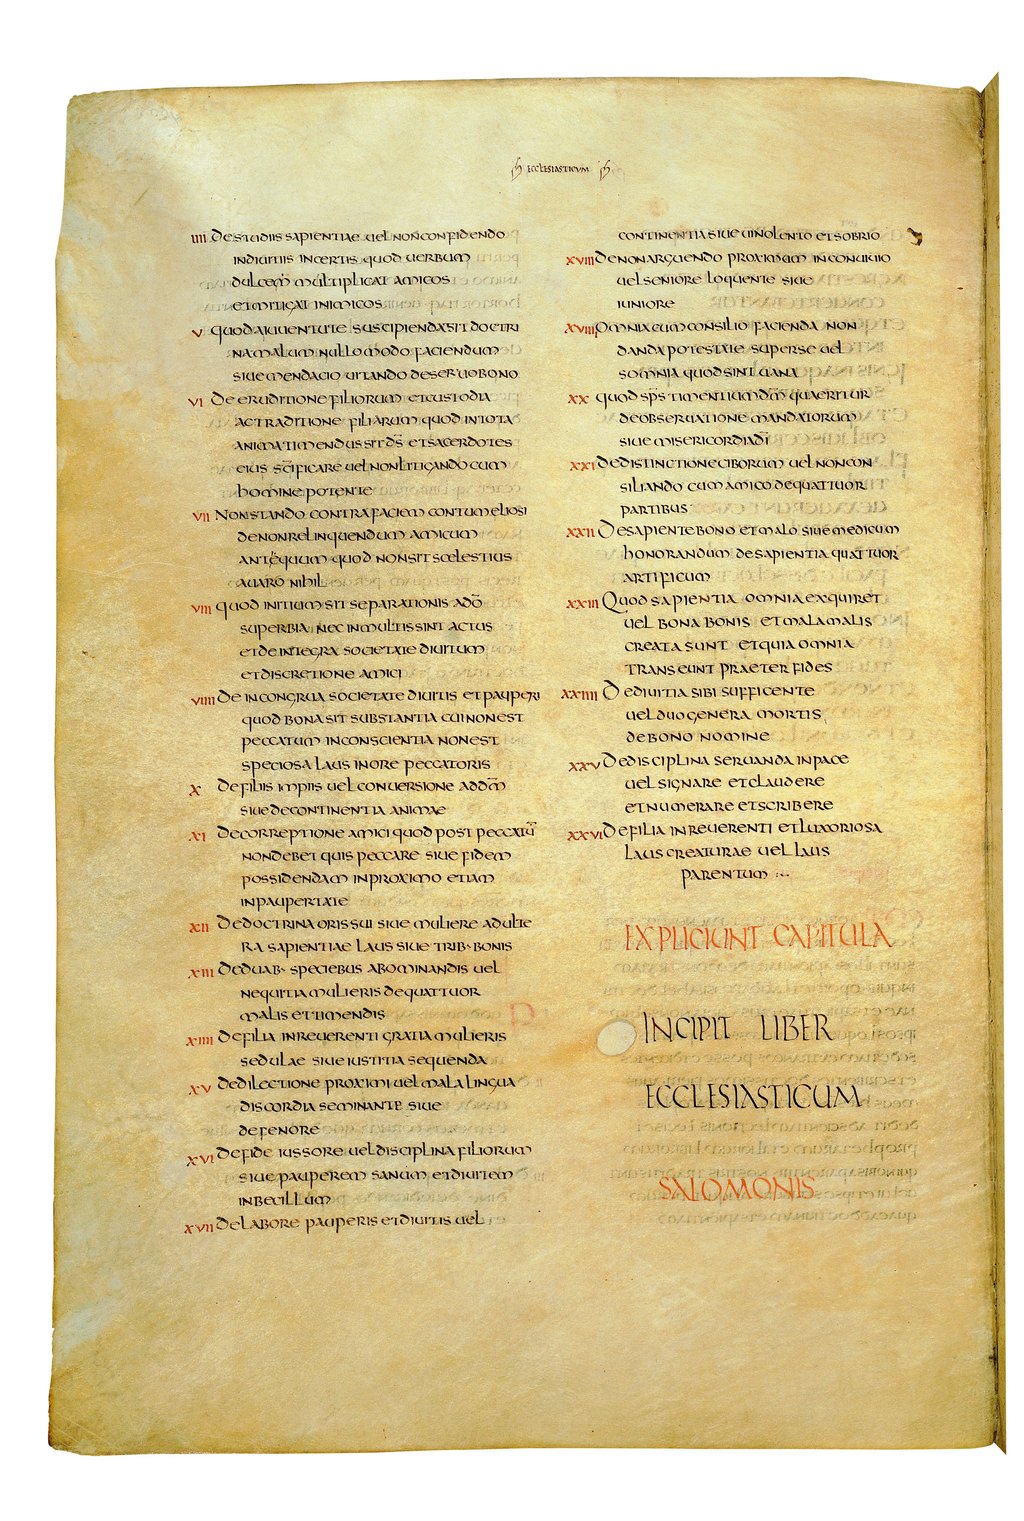 ECCLESIASTICUM
IIII De studiis sapientiae uel non confidendo
in diuitiis incertis quod uerbum
dulcem̅ multiplicat amicos
et mitigat inimicos
V quod a iuuentute suscipienda sit doctri
na malum nullo modo faciendum
siue mendacio uitando deseruo bono
VI De eruditione filiorum et custodia
ac traditione filiarum quod in tota
anima timendus sit d̅s̅ et sacerdotes
eius s̅c̅ificare uel non litigando cum
homine potente
VII Non stando contra faciem contumeliosi
de non relinquendum amicum
antequum quod non sit scelestius
auaro nihil
VIII quod initium sit separationis a d̅o̅
superbia nec in multis sint actus
et de integra societate diuitum
et discretione amici
VIIII De incongrua societate diuitis et pauperi
quod bona sit substantia cui non est
peccatum in conscientia non est
speciosa laus in ore peccatoris
X De filiis impiis uel conuersione ad d̅m̅
siue de continentia animae
XI De correptione amici quod post peccatū
non debet quis peccare siue fidem
possidendam in proximo etiam
in paupertate
XII De doctrina oris sui siue muliere adulte
ra sapientiae laus siue trib· bonis
XIII De duab· speciebus abominandis uel
nequitia mulieris de quattuor
malis et timendis
XIIII De filia inreuerenti gratia mulieris
sedulae siue iustitia sequenda
XV De dilectione proximi uel mala lingua
discordia seminante siue
defenore
XVI De fide iussore uel disciplina filiorum
siue pauperem sanum et diuitem
inbecillum
XVII De labore pauperis et diuitis uel
continentia siue uinolento et sobrio
XVIII De non arguendo proximum in conuiuio
uel seniore loquente siue
iuniore
XVIIII Omnia cum consilio facienda non
danda potestate super se uel
somnia quod sint uana
XX quod s̅p̅s̅ timentium d̅m̅ quaeritur
de obseruatione mandatorum
siue misericordia d̅i̅
XXI De distinctione ciborum uel non con
siliando cum amico de quattuor
partibus
XXII De sapiente bono et malo siue medicum
honorandum de sapientia quattuor
artificum
XXIII Quod sapientia omnia exquiret
uel bona bonis et mala malis
creata sunt et quia omnia
transeunt praeter fides
XXIIII De diuitia sibi sufficente
uel duo genera mortis
de bono nomine
XXV De disciplina seruanda in pace
uel signare et claudere
et numerare et scribere
XXVI De filia inreuerenti et luxoriosa
laus creaturae uel laus
parentum :~
EXPLICIUNT CAPITULA
INCIPIT LIBER
ECCLESIASTICUM
SALOMONIS